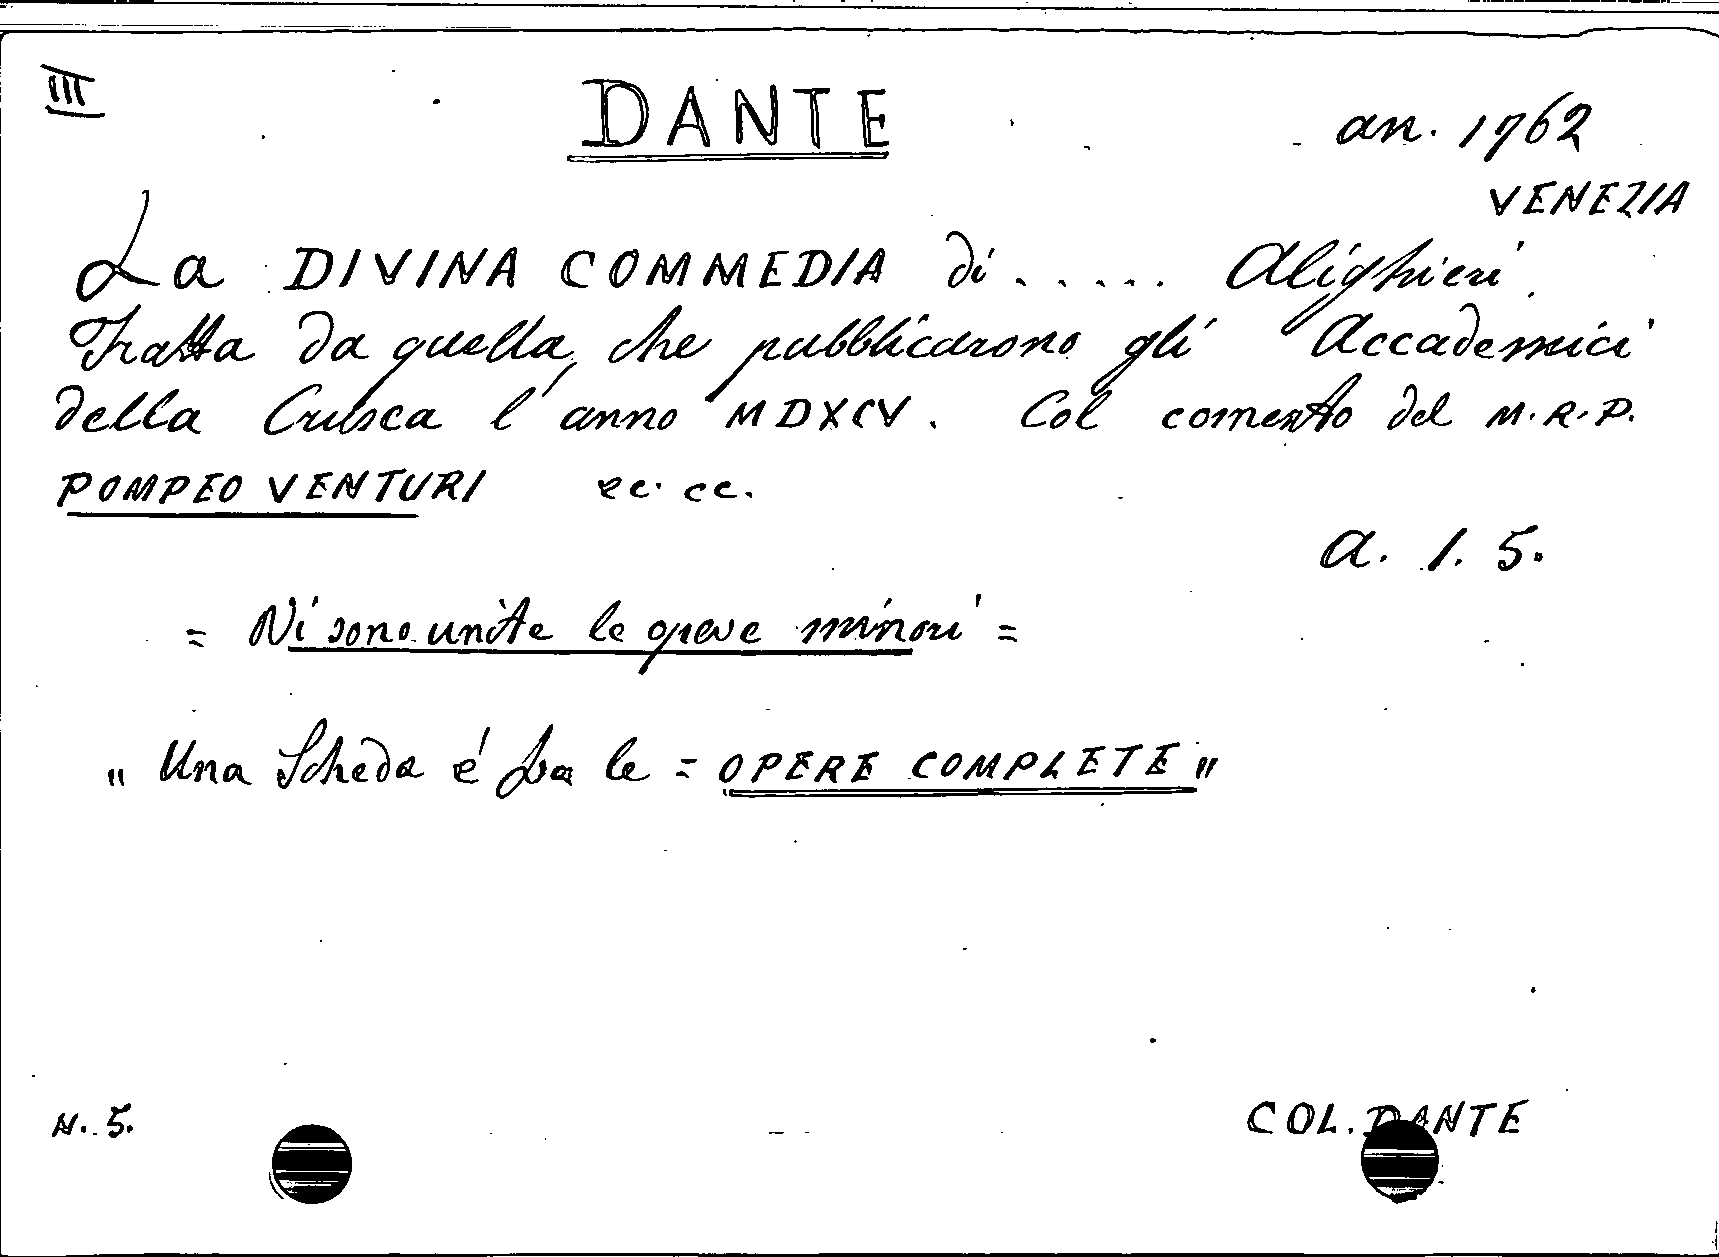 III
DANTE
an. 1762
VENEZIA
La DIVINA COMMEDIA di ..... Alighieri
Tratta da quella, che pubblicarono gli Accademici
della Crusca l'anno MDXCV. Col comento del M.R.P.
POMPEO VENTURI ec. ec.
a. 1. 5.
= Vi sono unite le opere minori =
" Una Scheda é fra le = OPERE COMPLETE "
N. 5.
COL. DANTE